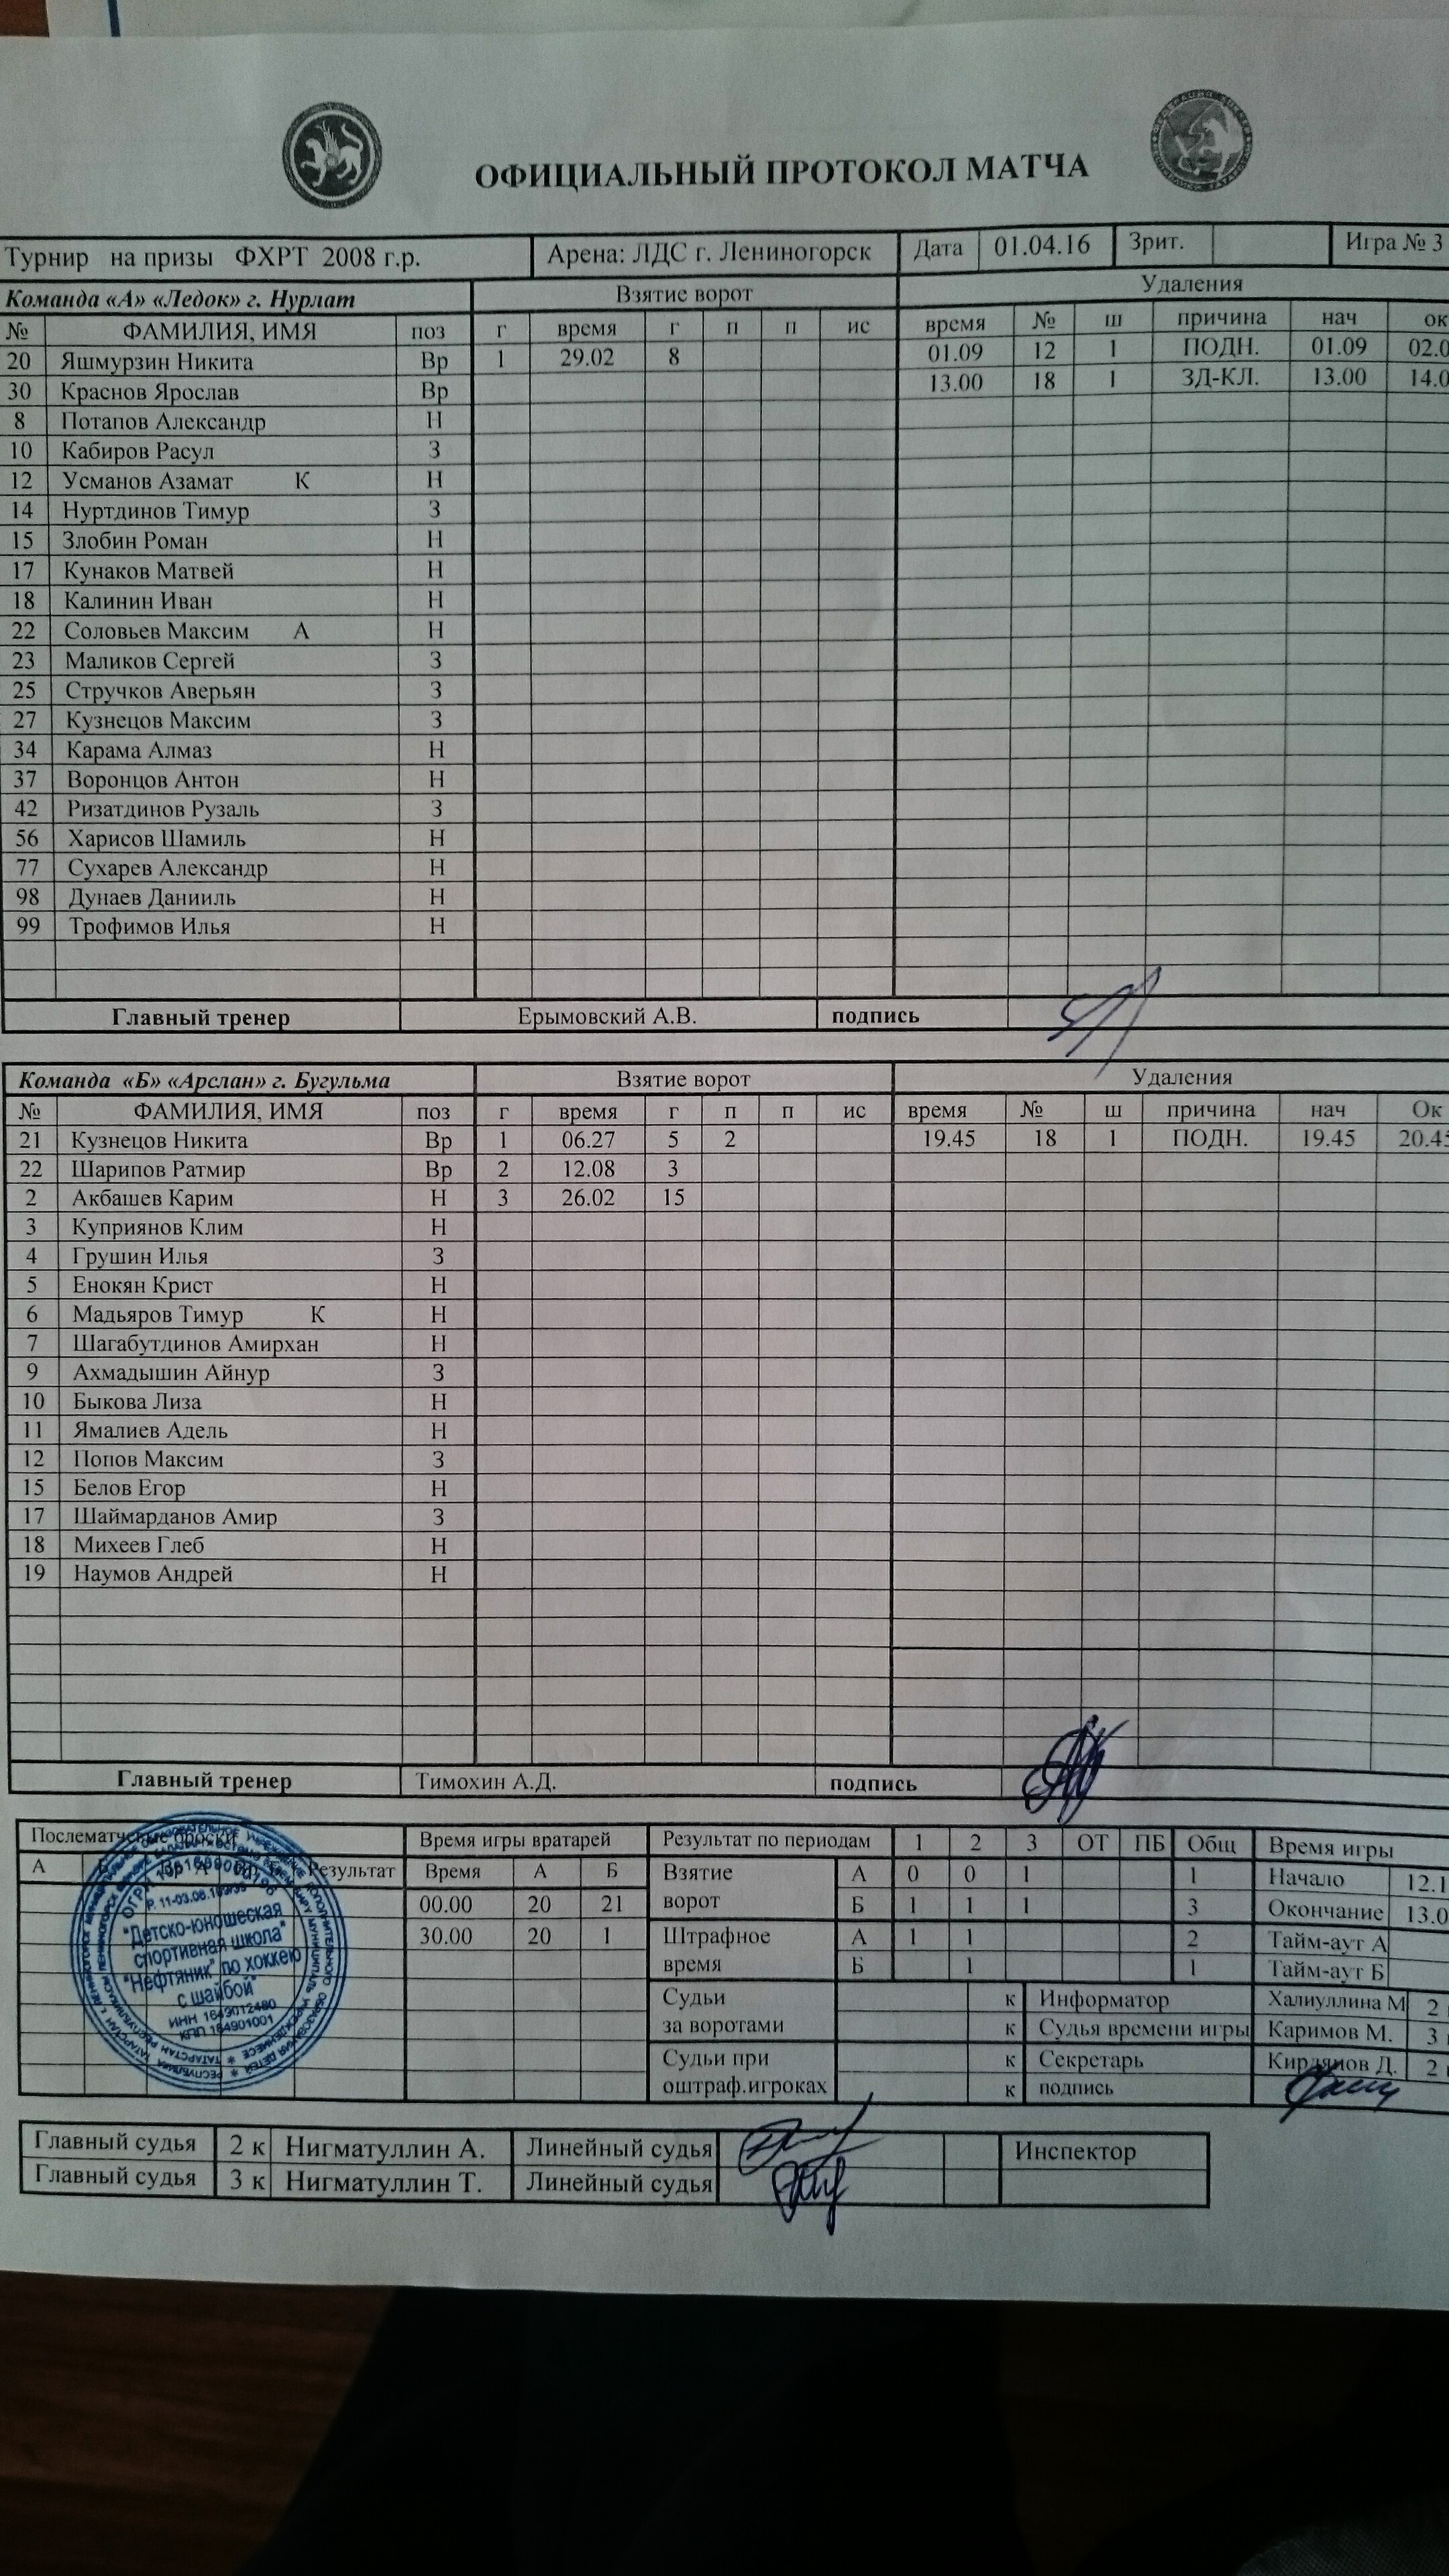 ОФИЦИАЛЬНЫЙ ПРОТОКОЛ МАТЧА
Турнир на призы ФХРТ 2008 г.р. Арена: ЛДС г. Лениногорск Дата 01.04.16 Зрит. Игра № 3
Команда «А» «Ледок» г. Нурлат Взятие ворот Удаления
№ ФАМИЛИЯ, ИМЯ поз г время г п п ис время № ш причина нач ок
20 Яшмурзин Никита Вр 1 29.02 8 01.09 12 1 ПОДН. 01.09 02.0
30 Краснов Ярослав Вр 13.00 18 1 ЗД-КЛ. 13.00 14.0
8 Потапов Александр Н
10 Кабиров Расул З
12 Усманов Азамат К Н
14 Нуртдинов Тимур З
15 Злобин Роман Н
17 Кунаков Матвей Н
18 Калинин Иван Н
22 Соловьев Максим А Н
23 Маликов Сергей З
25 Стручков Аверьян З
27 Кузнецов Максим З
34 Карама Алмаз Н
37 Воронцов Антон Н
42 Ризатдинов Рузаль З
56 Харисов Шамиль Н
77 Сухарев Александр Н
98 Дунаев Данииль Н
99 Трофимов Илья Н
Главный тренер Ерымовский А.В. подпись
Команда «Б» «Арслан» г. Бугульма Взятие ворот Удаления
№ ФАМИЛИЯ, ИМЯ поз г время г п п ис время № ш причина нач Ок
21 Кузнецов Никита Вр 1 06.27 5 2 19.45 18 1 ПОДН. 19.45 20.45
22 Шарипов Ратмир Вр 2 12.08 3
2 Акбашев Карим Н 3 26.02 15
3 Куприянов Клим Н
4 Грушин Илья З
5 Енокян Крист Н
6 Мадьяров Тимур К Н
7 Шагабутдинов Амирхан Н
9 Ахмадышин Айнур З
10 Быкова Лиза Н
11 Ямалиев Адель Н
12 Попов Максим З
15 Белов Егор Н
17 Шаймарданов Амир З
18 Михеев Глеб Н
19 Наумов Андрей Н
Главный тренер Тимохин А.Д. подпись
Послематчевые броски Время игры вратарей Результат по периодам 1 2 3 ОТ ПБ Общ Время игры
А Результат Время А Б Взятие А 0 0 1 1 Начало 12.1
00.00 20 21 ворот Б 1 1 1 3 Окончание 13.0
30.00 20 1 Штрафное А 1 1 2 Тайм-аут А
время Б 1 1 Тайм-аут Б
Судьи к Информатор Халиуллина М 2
за воротами к Судья времени игры Каримов М. 3
Судьи при к Секретарь Кирдянов Д. 2
оштраф.игроках к подпись
"Детско-юношеская
спортивная школа"
"Нефтяник" по хоккею
с шайбой"
ИНН 1649012480
КПП 164901001
Главный судья 2 к Нигматуллин А. Линейный судья Инспектор
Главный судья 3 к Нигматуллин Т. Линейный судья